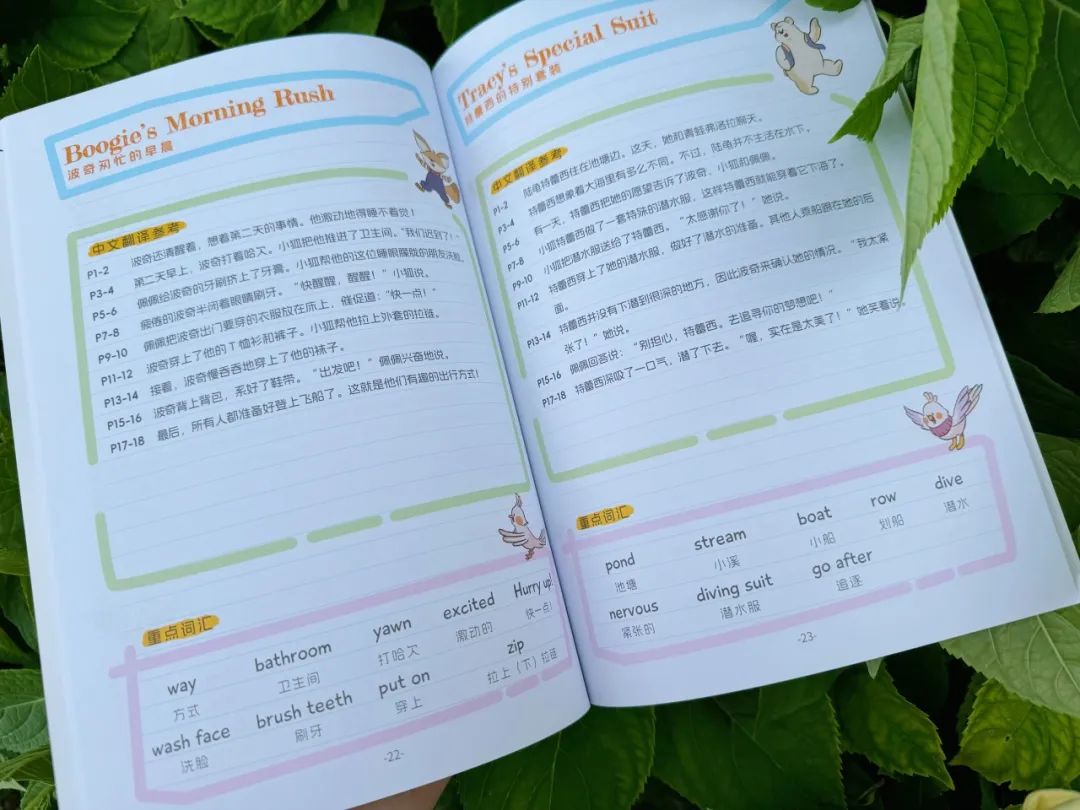 Boogie's Morning Rush
波奇匆忙的早晨
中文翻译参考
P1-2 波奇还清醒着，想着第二天的事情。他激动地得睡不着觉！
P3-4 第二天早上，波奇打着哈欠。小狐把他推进了卫生间。“我们迟到了！”
P5-6 佩佩给波奇的牙刷挤上了牙膏。小狐帮他的这位睡眼朦胧的朋友洗脸。
P7-8 疲倦的波奇半闭着眼睛刷牙。“快醒醒，醒醒！”小狐说。
P9-10 佩佩把波奇出门要穿的衣服放在床上，催促道：“快一点！”
P11-12 波奇穿上了他的T恤衫和裤子。小狐帮他拉上外套的拉链。
P13-14 接着，波奇慢吞吞地穿上了他的袜子。
P15-16 波奇背上背包，系好了鞋带。“出发吧！”佩佩兴奋地说。
P17-18 最后，所有人都准备好登上飞船了。这就是他们有趣的出行方式！
重点词汇
way bathroom yawn excited Hurry up!
方式 卫生间 打哈欠 激动的 快一点！
wash face brush teeth put on zip
洗脸 刷牙 穿上 拉上（下）拉链
-22-
Tracy's Special Suit
特蕾西的特别套装
中文翻译参考
P1-2 陆龟特蕾西住在池塘边。这天，她和青蛙弗洛拉聊天。
P3-4 特蕾西想象着大海里有多么不同。不过，陆龟并不生活在水下。
P5-6 有一天，特蕾西把她的愿望告诉了波奇、小狐和佩佩。
P7-8 小狐给特蕾西做了一套特殊的潜水服，这样特蕾西就能穿着它下海了。
P9-10 小狐把潜水服送给了特蕾西。“太感谢你了！”她说。
P11-12 特蕾西穿上了她的潜水服，做好了潜水的准备。其他人乘船跟在她的后
面。
P13-14 特蕾西并没有下潜到很深的地方，因此波奇来确认她的情况。“我太紧
张了！”她说。
P15-16 佩佩回答说：“别担心，特蕾西。去追寻你的梦想吧！”
P17-18 特蕾西深吸了一口气，潜了下去。“喔，实在是太美了！”她笑着说。
重点词汇
pond stream boat row dive
池塘 小溪 小船 划船 潜水
nervous diving suit go after
紧张的 潜水服 追逐
-23-